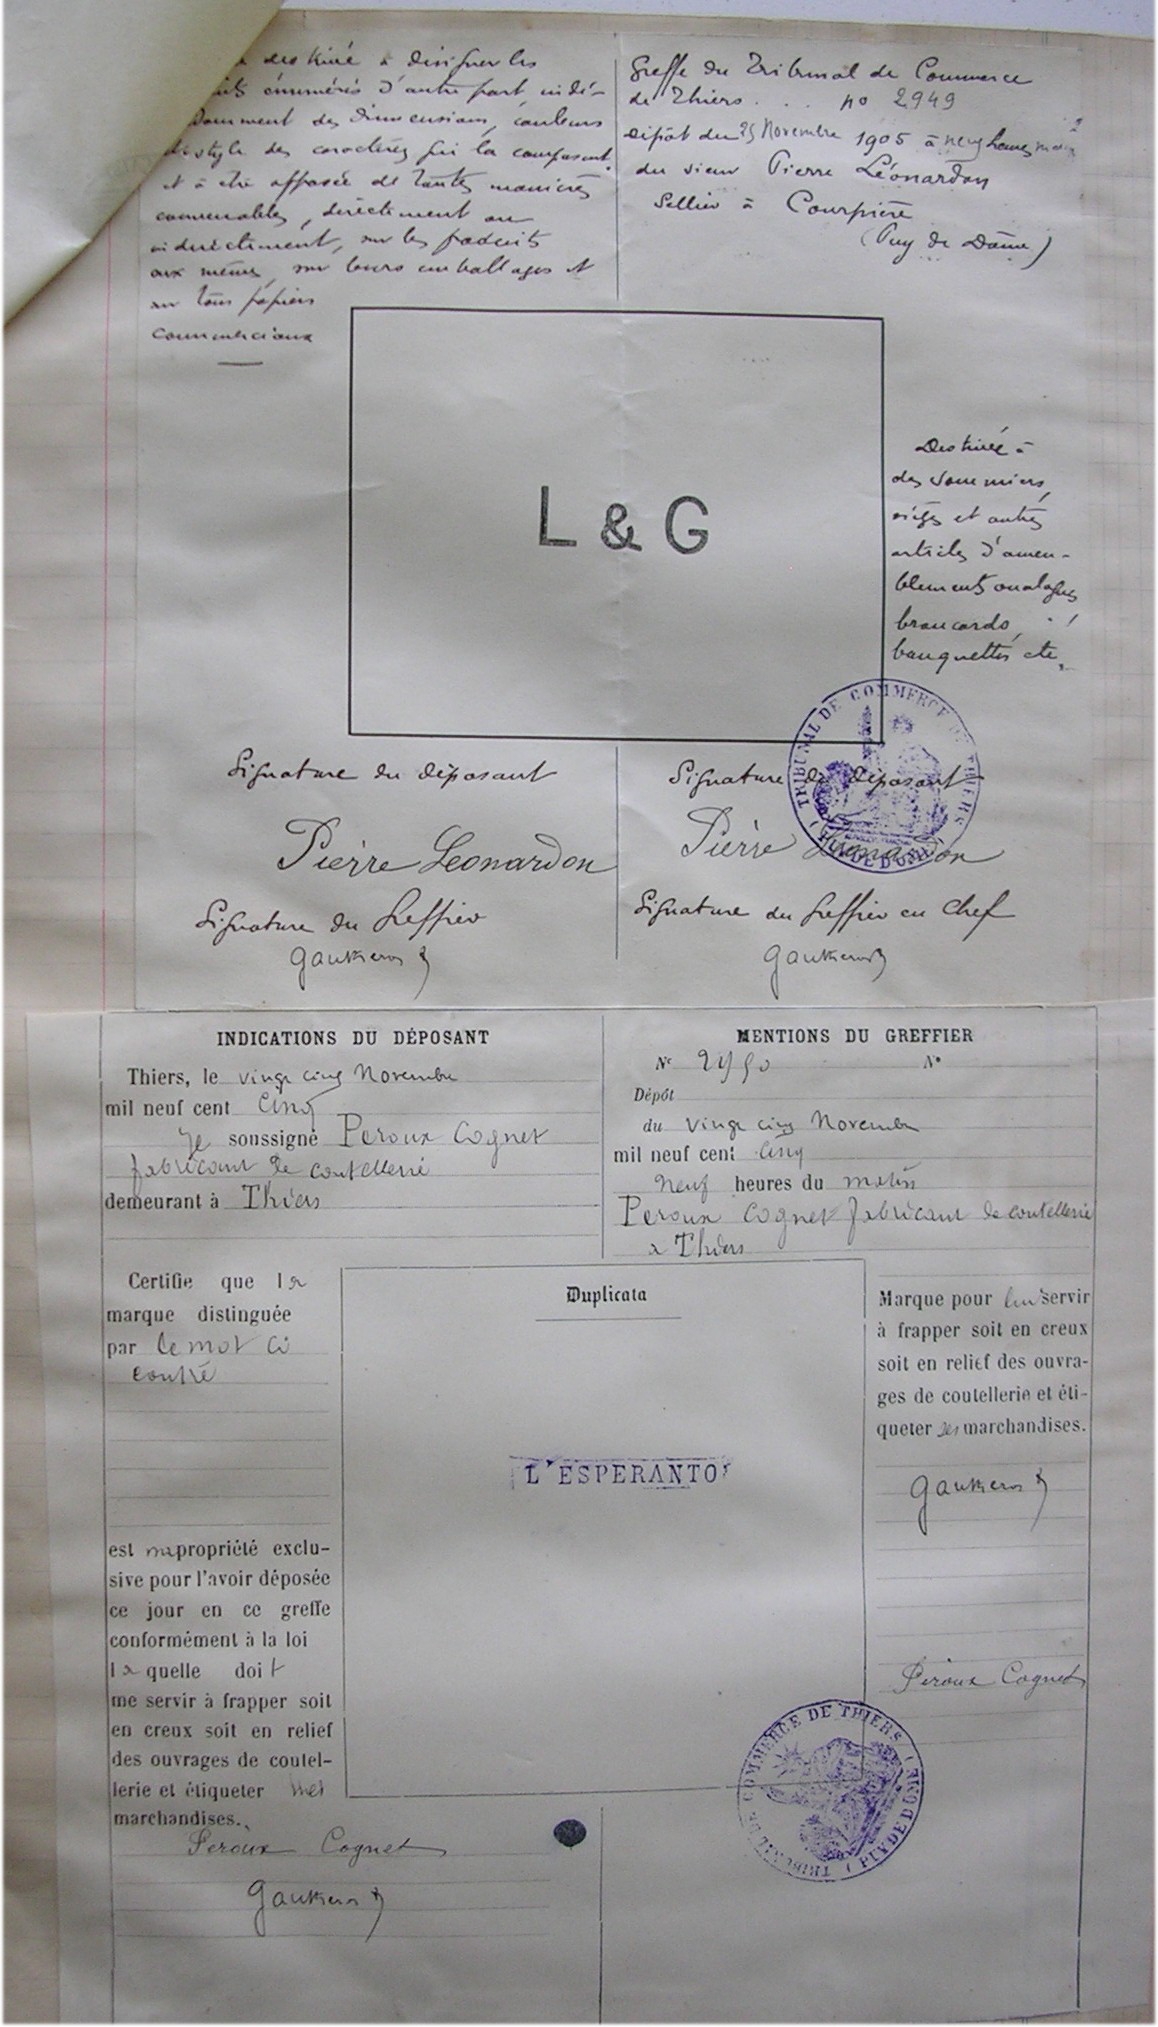 destiné à désigner les
énumérés d'autre part indé-
damment des dimensions, couleurs
style des caractères qui la composent
et à être apposée de toutes manières
convenables, directement ou
indirectement, sur les produits
eux mêmes, sur leurs emballages et
sur tous papiers
commerciaux
Greffe du Tribunal de Commerce
de Thiers . . . no 2949
Dépôt du 25 Novembre 1905 à neuf heures matin
du sieur Pierre Léonardon
Sellier à Courpière
(Puy de Dôme)
L & G
Destinée à
des sommiers,
sièges et autres
articles d'ameu-
blements analogues
brancards,
banquettes etc.
Signature du déposant
Pierre Leonardon
Signature du Greffier
Gautheron
Signature du déposant
Pierre Leonardon
Signature du Greffier en Chef
Gautheron
TRIBUNAL DE COMMERCE DE THIERS
(PUY DE DOME)
INDICATIONS DU DÉPOSANT
Thiers, le vingt cinq Novembre
mil neuf cent Cinq
Je soussigné Peroux Cognet
fabricant de coutellerie
demeurant à Thiers
MENTIONS DU GREFFIER
N° 2950 N°
Dépôt
du vingt cinq Novembre
mil neuf cent Cinq
neuf heures du matin
Peroux Cognet fabricant de coutellerie
a Thiers
Certifie que la
marque distinguée
par le mot ci
contre
est ma propriété exclu-
sive pour l'avoir déposée
ce jour en ce greffe
conformément à la loi
la quelle doit
me servir à frapper soit
en creux soit en relief
des ouvrages de coutel-
lerie et étiqueter mes
marchandises.
Peroux Cognet
Gautheron
Duplicata
L'ESPERANTO
Marque pour lui servir
à frapper soit en creux
soit en relief des ouvra-
ges de coutellerie et éti-
queter ses marchandises.
Gautheron
Peroux Cognet
TRIBUNAL DE COMMERCE DE THIERS
(PUY DE DOME)